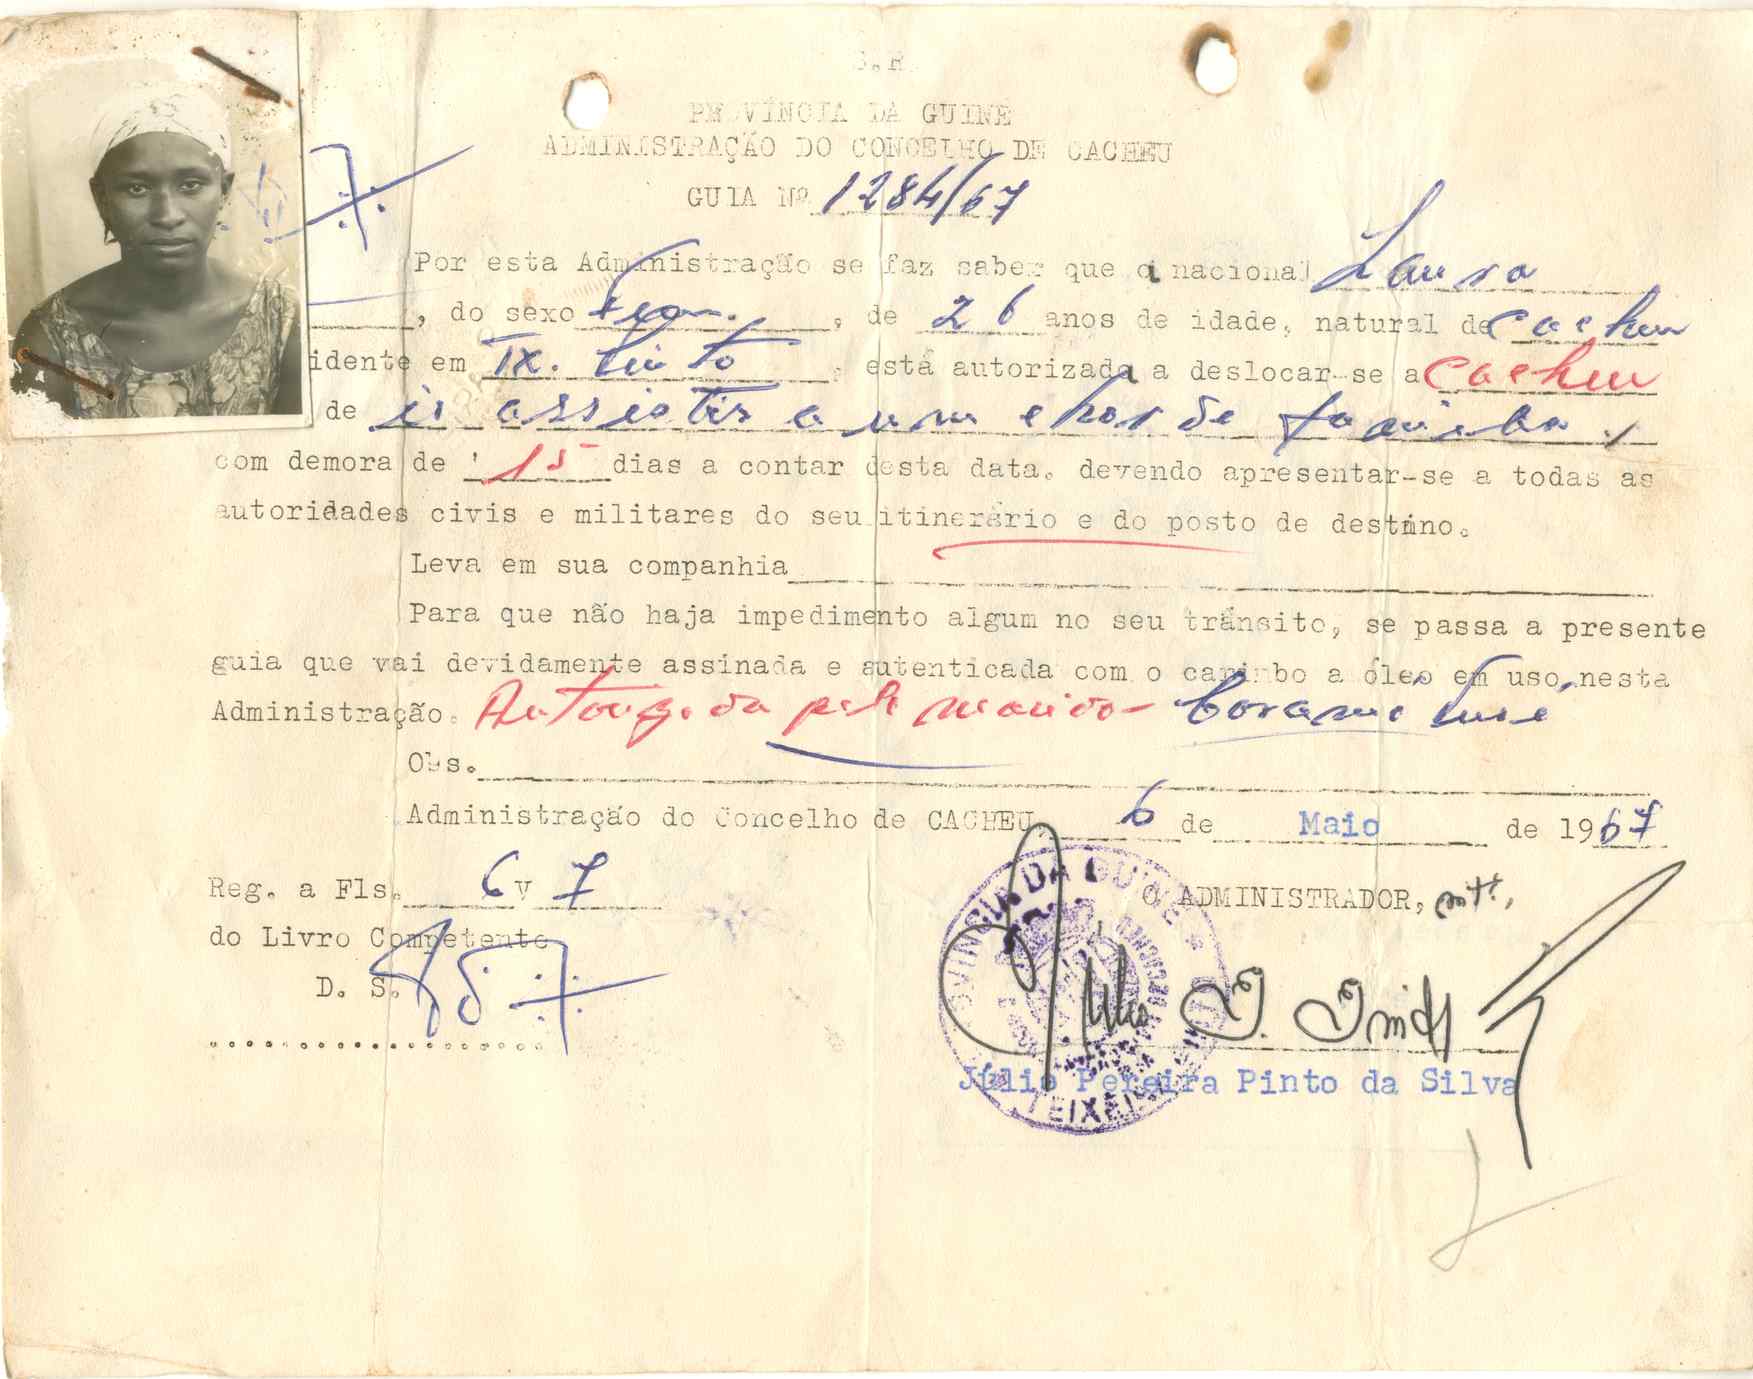 PROVÍNCIA DA GUINÉ
ADMINISTRAÇÃO DO CONCELHO DE CACHEU
GUIA Nº 1284/67
Por esta Administração se faz saber que a nacional Laura
, do sexo fem. , de 26 anos de idade, natural de Cacheu
idente em Tx. Pinto , está autorizada a deslocar-se a Cacheu
de ir assistir a um choro de família,
com demora de 15 dias a contar desta data, devendo apresentar-se a todas as
autoridades civis e militares do seu itinerário e do posto de destino.
Leva em sua companhia
Para que não haja impedimento algum no seu trânsito, se passa a presente
guia que vai devidamente assinada e autenticada com o carimbo a óleo em uso, nesta
Administração. Autorizada pelo marido -
Obs.
Administração do Concelho de CACHEU, 6 de Maio de 1967
Reg. a Fls. 6 v 7
O ADMINISTRADOR,
do Livro Competente
D. S.
Júlio Pereira Pinto da Silva